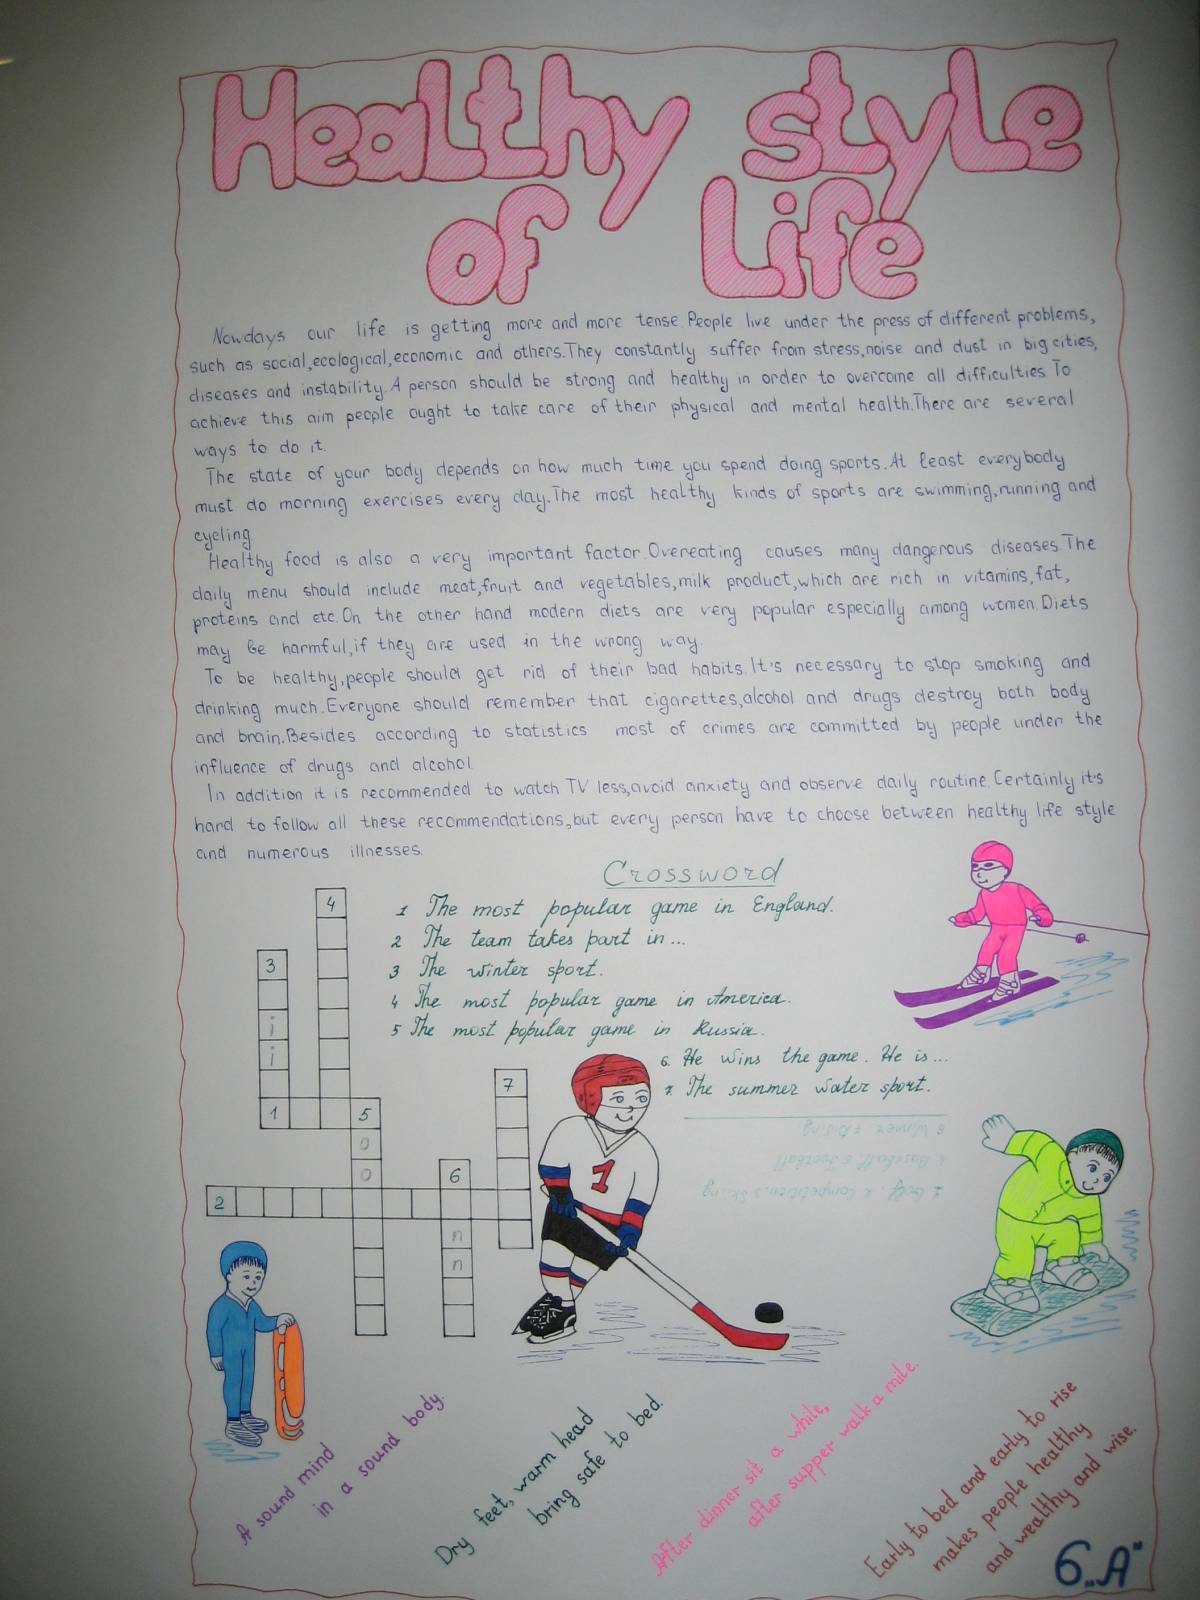 Healthy style
of Life
Nowdays our life is getting more and more tense. People live under the press of different problems,
such as social, ecological, economic and others. They constantly suffer from stress, noise and dust in big cities,
diseases and instability. A person should be strong and healthy in order to overcome all difficulties. To
achieve this aim people ought to take care of their physical and mental health. There are several
ways to do it.
The state of your body depends on how much time you spend doing sports. At least everybody
must do morning exercises every day. The most healthy kinds of sports are swimming, running and
cycling
Healthy food is also a very important factor. Overeating causes many dangerous diseases. The
daily menu should include meat, fruit and vegetables, milk product, which are rich in vitamins, fat,
proteins and etc. On the other hand modern diets are very popular especially among women. Diets
may be harmful, if they are used in the wrong way.
To be healthy, people should get rid of their bad habits. It's necessary to stop smoking and
drinking much. Everyone should remember that cigarettes, alcohol and drugs destroy both body
and brain. Besides according to statistics most of crimes are committed by people under the
influence of drugs and alcohol.
In addition it is recommended to watch TV less, avoid anxiety and observe daily routine. Certainly it's
hard to follow all these recommendations, but every person have to choose between healthy life style
and numerous illnesses.
Crossword
1 The most popular game in England.
2 The team takes part in...
3 The winter sport.
4 The most popular game in America.
5 The most popular game in Russia.
6. He wins the game. He is...
7. The summer water sport.
4
3
i
i
1
5
o
o
7
6
2
n
n
1
6 Winner
4 Baseball, 5 Football
1 Golf, 2 Competition, 3 Skiing
A sound mind
in a sound body.
Dry feet, warm head
bring safe to bed.
After dinner sit a while,
after supper walk a mile.
Early to bed and early to rise
makes people healthy
and wealthy and wise.
6 „A"